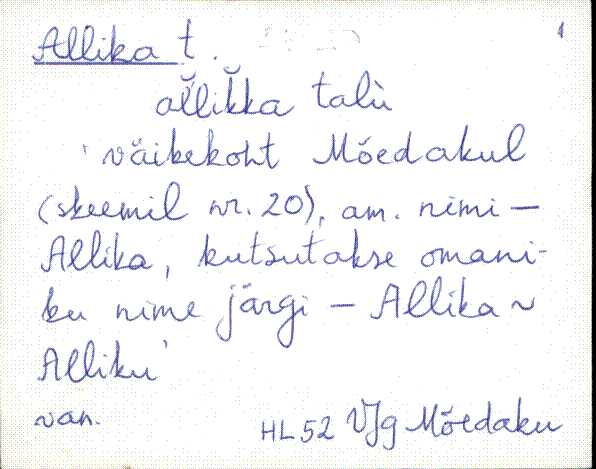 Allika t. 1
al̆lik̆ka talù
'väikekoht Mõedakul
(skeemil nr. 20), am. nimi –
Allika, kutsutakse omani-
ku nime järgi – Allika ~
Alliku'
van. HL 52 VJg Mõedaku